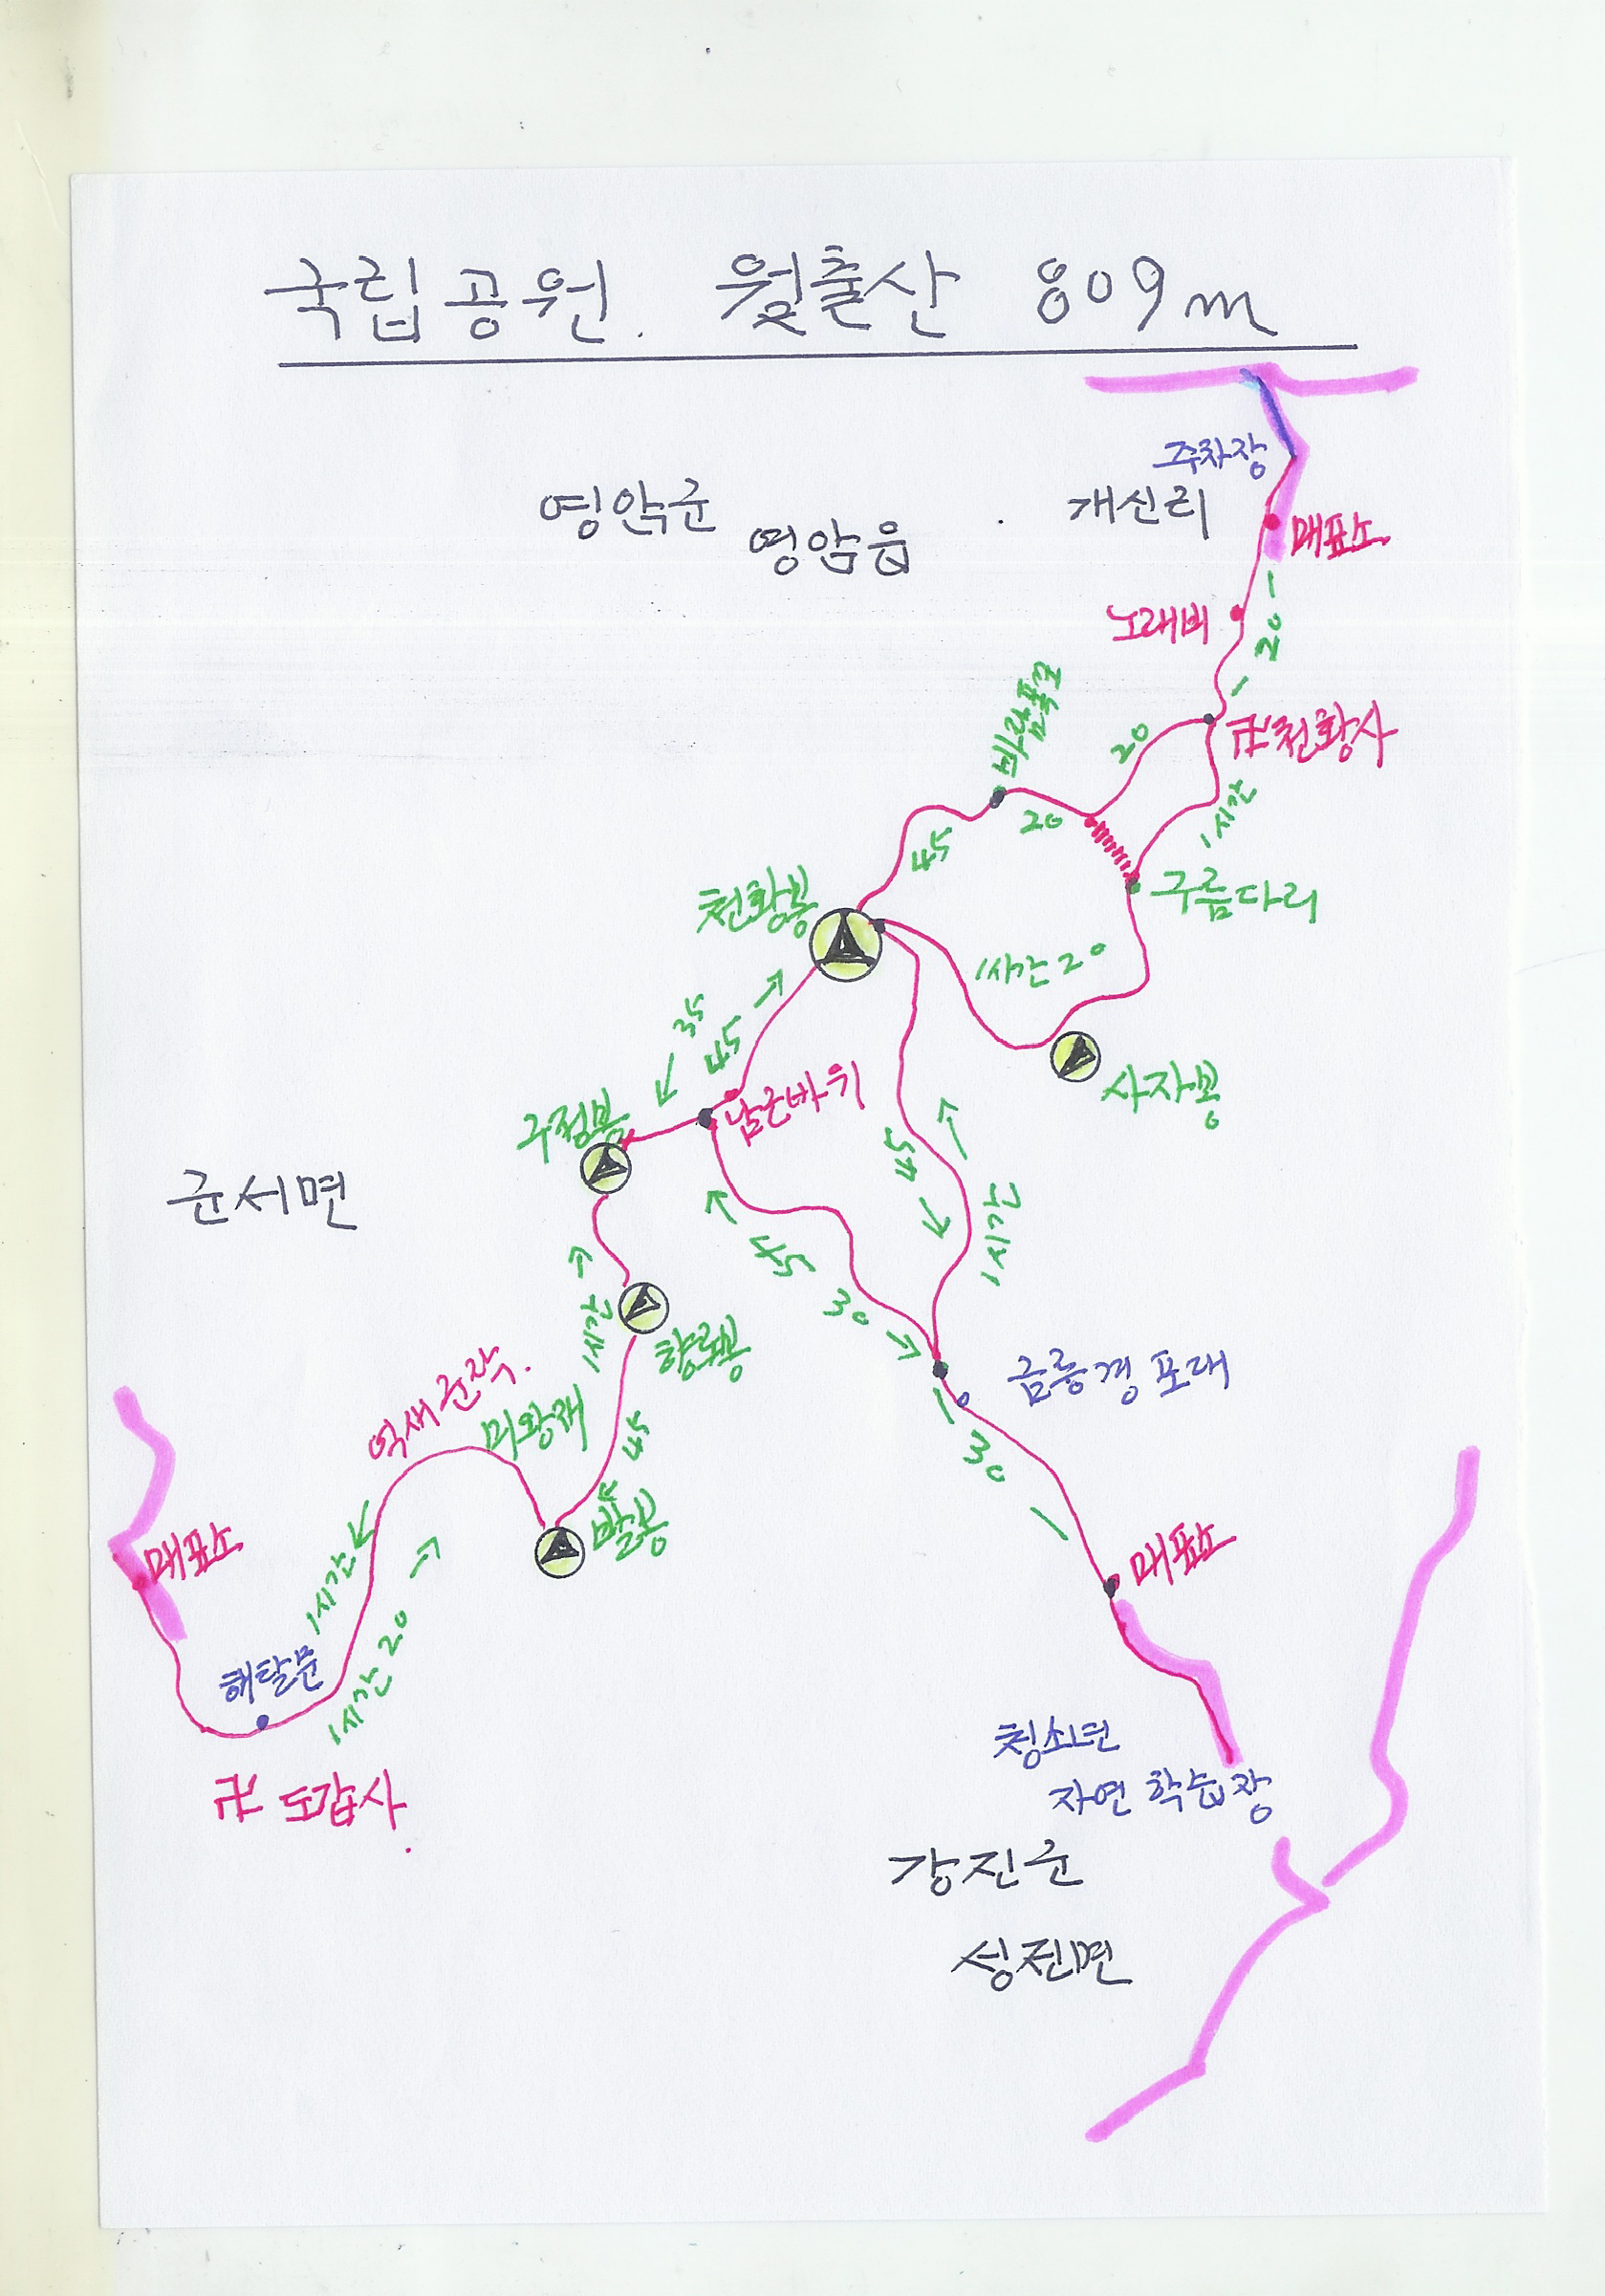 국립공원. 월출산 809m
주차장
영암군
개신리
영암읍
매표소
노래비
20
바람폭포
20
卍천황사
20
1시간
45
구름다리
천황봉
1시간 20
35
45
사자봉
남근바위
구정봉
45
군서면
1시간
45
30
1시간
향로봉
금릉경포대
억새군락.
미왕재
45
30
발봉
매표소
매표소
1시간
1시간 20
해탈문
청소년
자연학습장
卍 도갑사
강진군
성전면